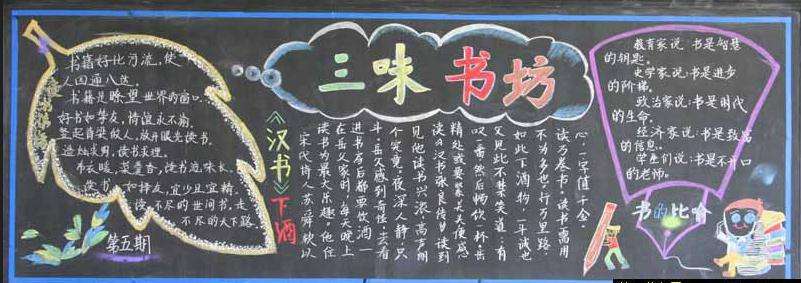 三味书坊
书籍好比河流，使
人四通八达。
书籍是瞭望世界的窗口。
好书如挚友，情谊永不渝。
竖起脊梁做人，放开眼光读书。
造烛求明，读书求理。
布衣暖，菜羹香，读书滋味长。
读书如择友，宜少且宜精。
读不尽的世间书，走
不尽的天下路。
第五期
《汉书》下酒
宋代诗人苏舜钦以
读书为最大乐趣。他住
在岳父家时，每天晚上
进书房后都要饮酒一
斗。岳父感到奇怪，去看
个究竟。夜深人静，只
见他读书兴浓，高声朗
读《汉书张良传》。读到
精处或要紧关头便感
叹一番，然后畅饮一杯。岳
父见此不禁笑道：有
如此下酒物，一斗诚也
不为多也。行万里路，
读万卷书。读书需用
心，一字值千金。
教育家说：书是智慧
的钥匙。
史学家说：书是进步
的阶梯。
政治家说：书是时代
的生命。
经济家说：书是致富
的信息。
学生们说：书是不开口
的老师。
书的比喻